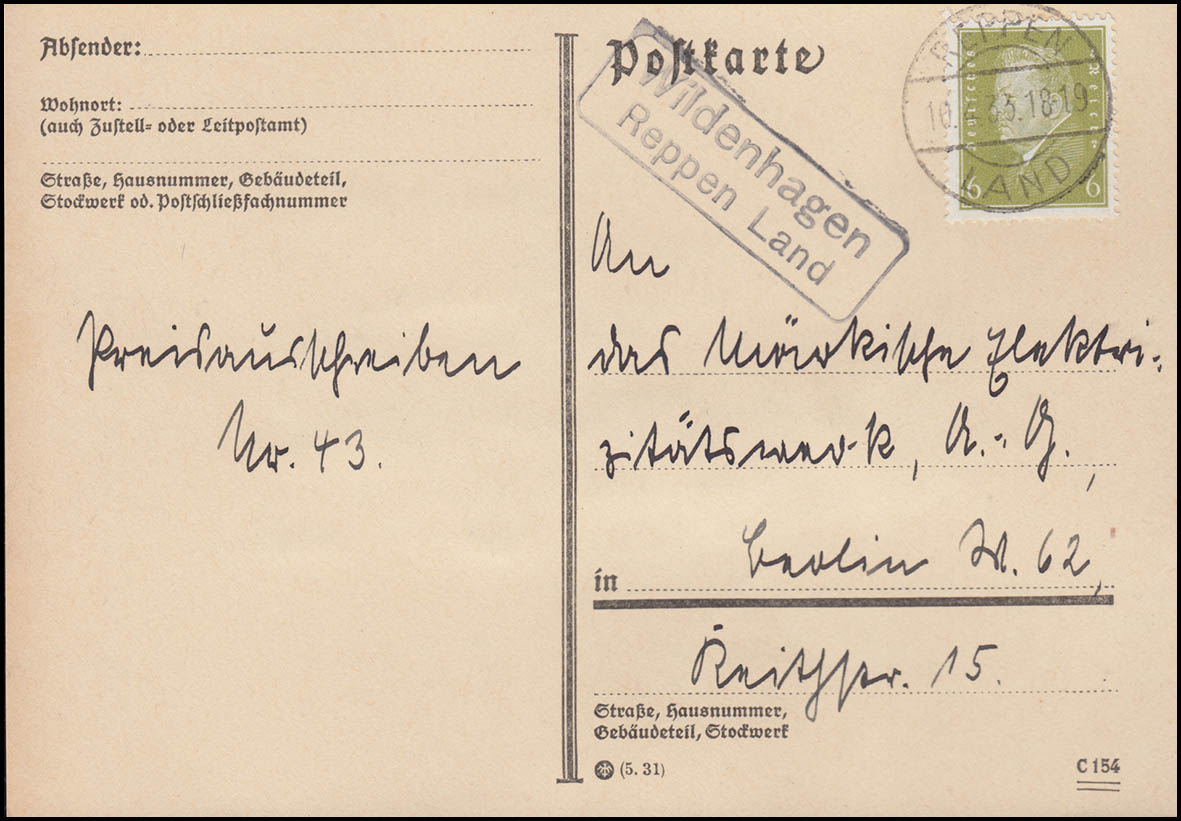 Absender:
Wohnort:
(auch Zustell- oder Leitpostamt)
Straße, Hausnummer, Gebäudeteil,
Stockwerk od. Postschließfachnummer
Preisausschreiben
Nr. 43.
Postkarte
Wildenhagen
Reppen Land
REPPEN
33.18-19
LAND
Deutsches Reich
6 6
An
das Märkische Elektri-
zitätswerk, A.-G.,
in Berlin W. 62,
Keithstr. 15.
Straße, Hausnummer,
Gebäudeteil, Stockwerk
(5. 31)
C 154